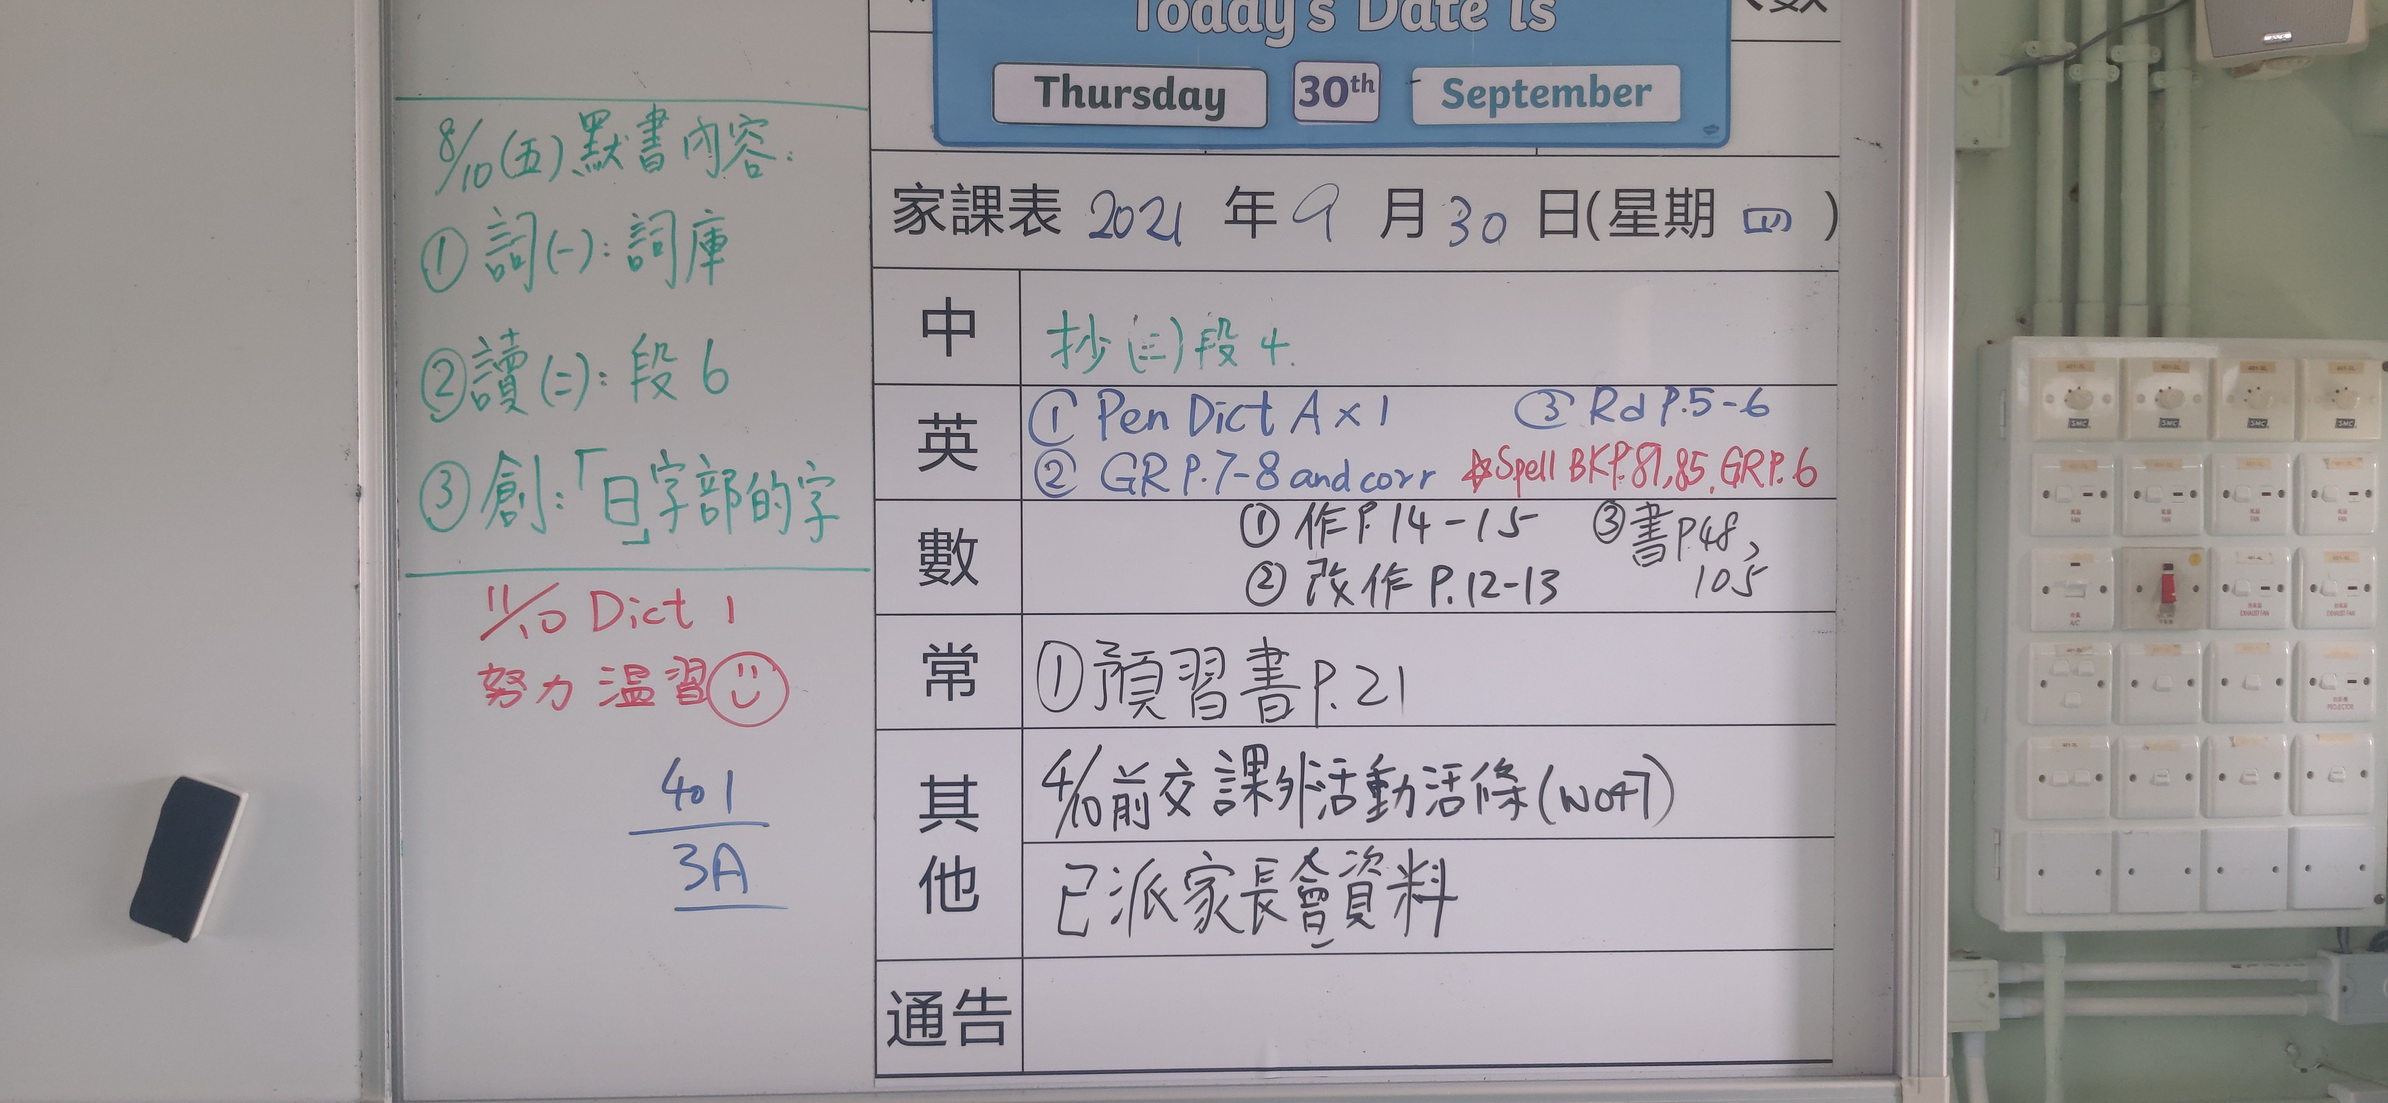 Today's Date is
Thursday 30th September
8/10(五)默書內容:
①詞(一):詞庫
②讀(二):段6
③創:「日」字部的字
11/10 Dict 1
努力 溫習
401
3A
家課表 2021 年 9 月 30 日(星期 四 )
中
抄(二)段4.
英
① Pen Dict A x 1 ③ Rd P.5-6
② GR P.7-8 and corr ☆Spell BKP.81,85,GRP.6
數
① 作P.14-15 ③書P.48,
② 改作 P.12-13 105
常
①預習書P.21
其他
4/10前交課外活動活條(W047)
已派家長會資料
通告
SMC
SMC
SMC
SMC